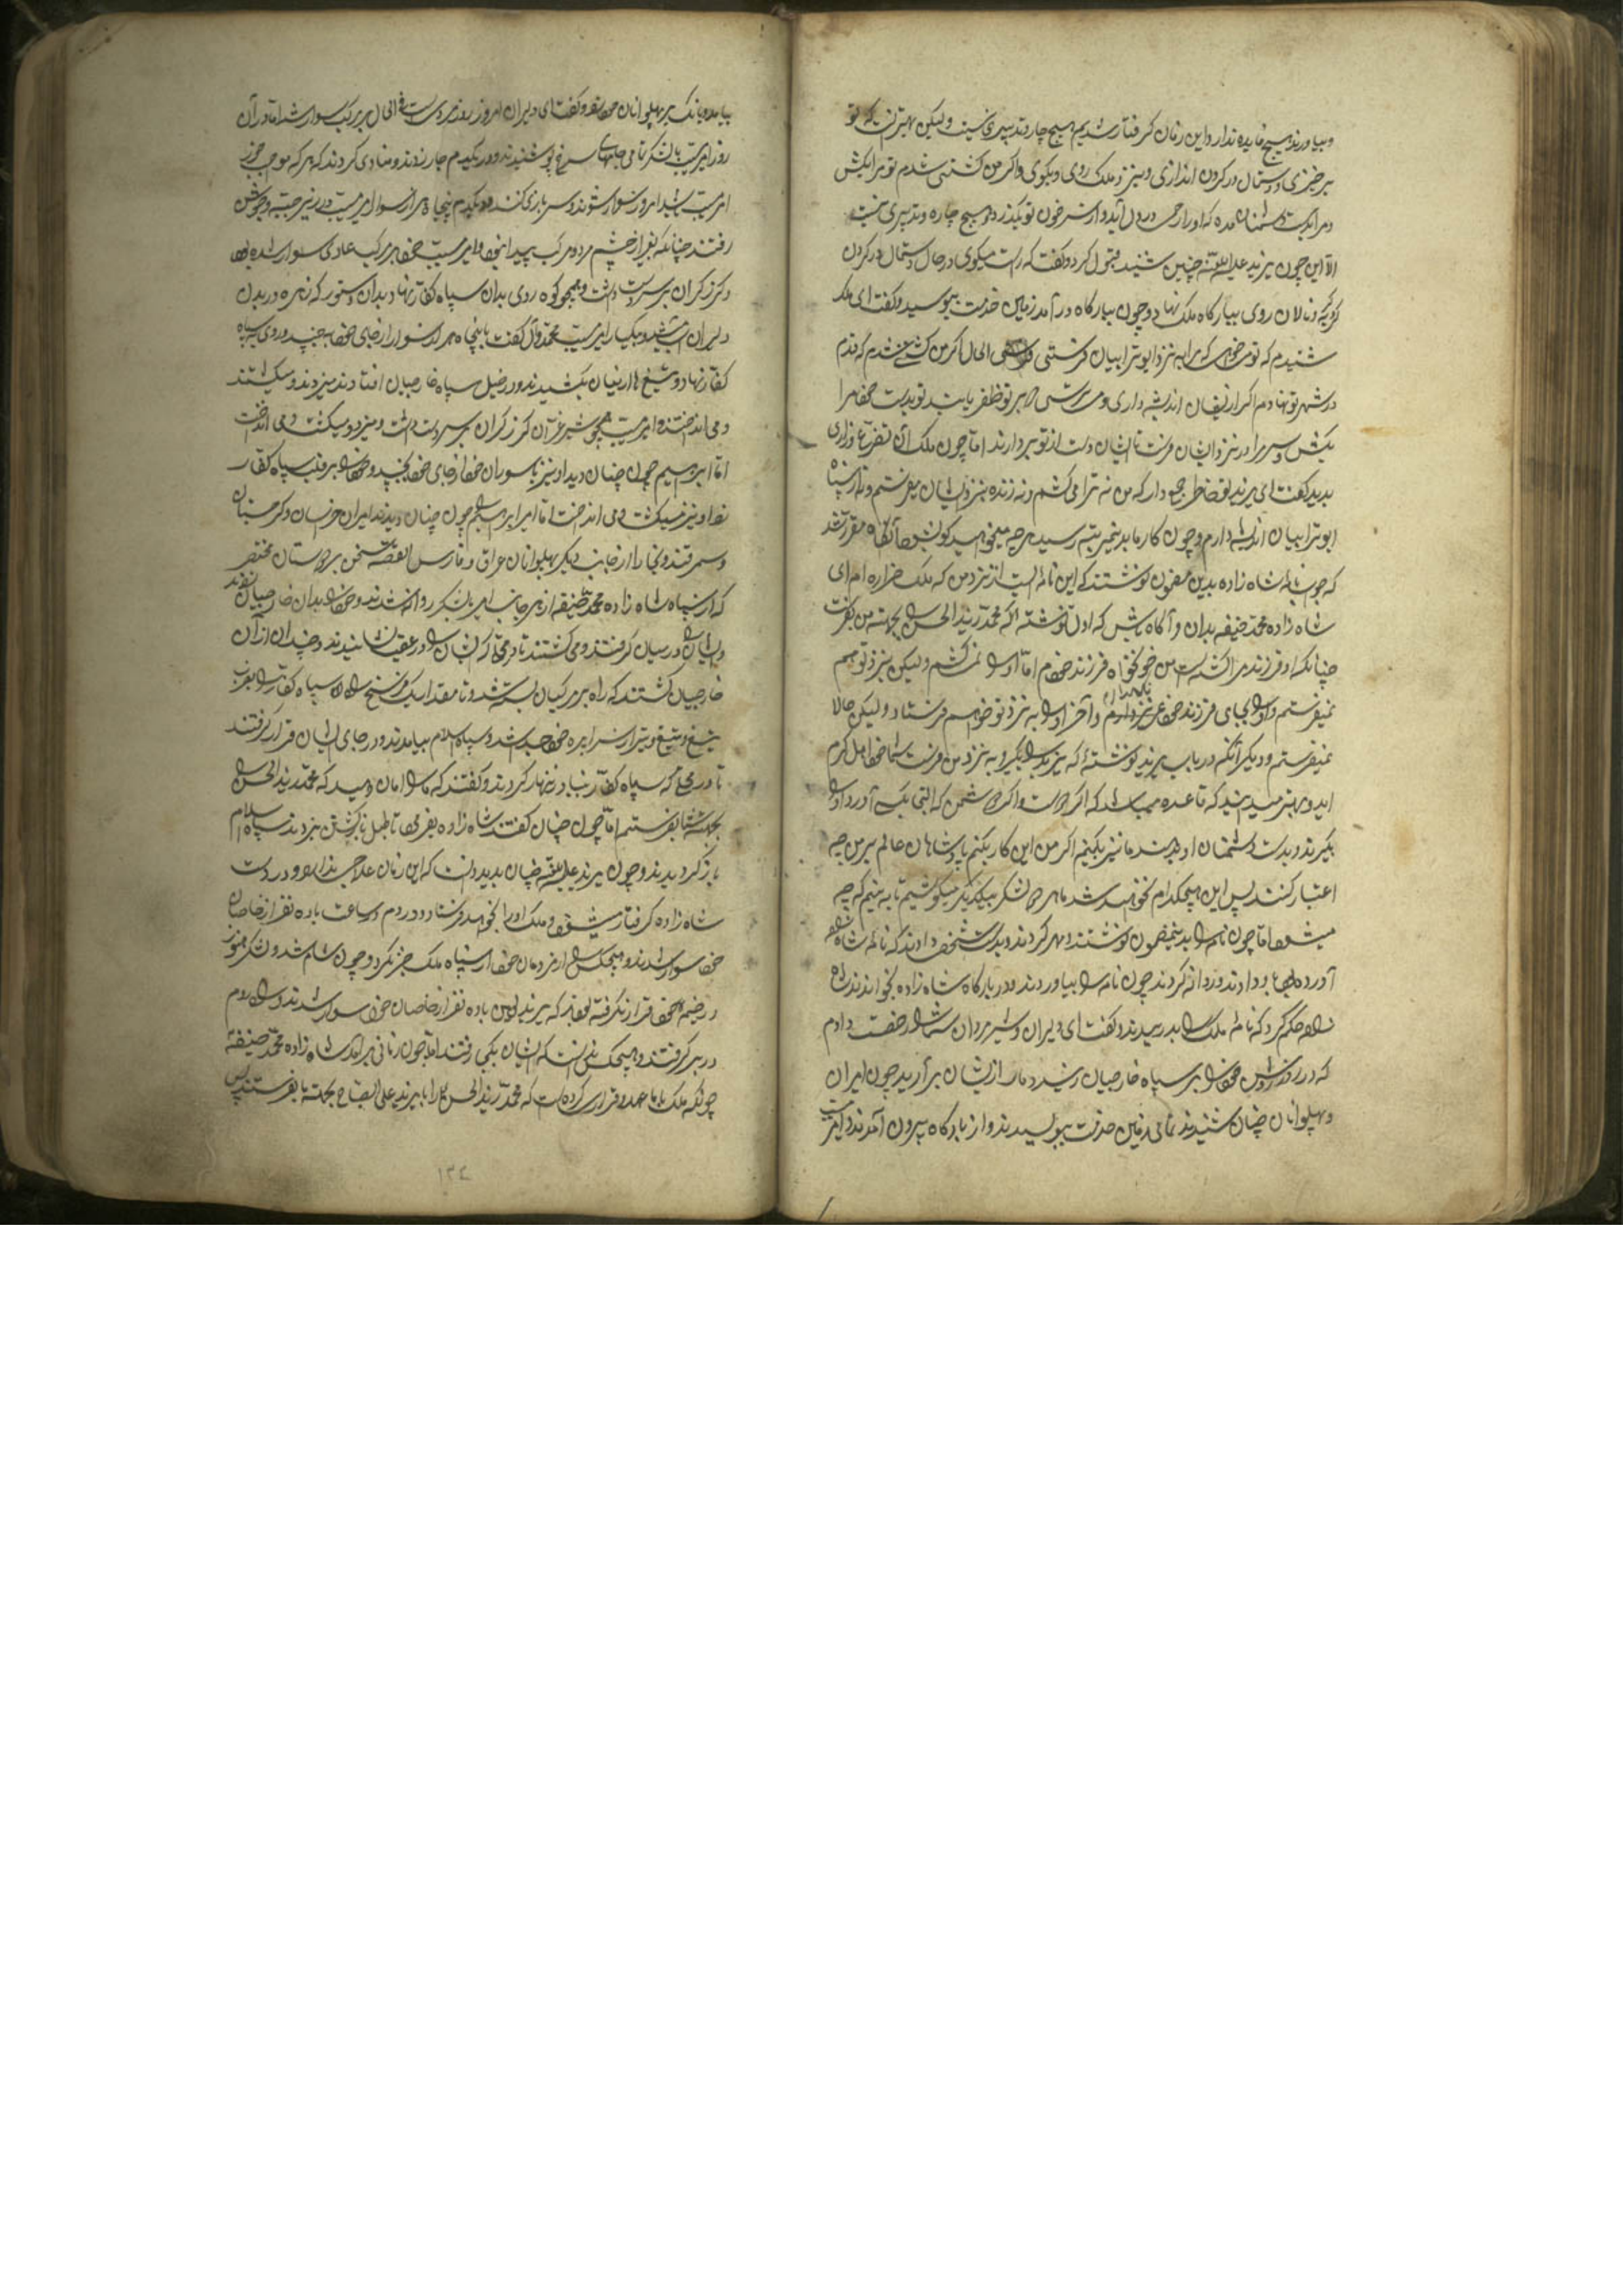 و بیاورند هیچ فایده ندارد این زمان گرفتار شدیم هیچ چاره و تدبیری نیست ولیکن بهتر آنست که تو
برخیزی و دستمال در گردن اندازی و بنزد ملک روی و بگوی و اگر من کشتنی شدم تو مرا بکش
و مرا بدست دشمنان مده که او را رحمی در دل آید و از سر خون تو بگذرد و هیچ چاره و تدبیری نیست
الا این چون یزید علیه اللعنه چنین شنید قبول کرد و گفت که راست میگوی در حال دستمال در گردن
کرد و نالان روی ببارگاه ملک نهاد و چون ببارگاه در آمد زمین خدمت ببوسید و گفت ای ملک
شنیدم که تو میخواهی که مرا به نزد ابوترابیان فرستی فی الحال اگر من کشتنی شدم که قدم
در شهر تو نهادم اگر از ایشان اندیشه داری و میترسی که بر تو ظفر یابند تو بدست خود مرا
بکش و سر مرا در نزد ایشان فرست تا ایشان دست از تو بردارند اما چون ملک آن تضرع و زاری
بدید گفت ای یزید تو خاطر جمع دار که من نه ترا می کشم و نه زنده بنزد ایشان میفرستم و نه از سپاه
ابوترابیان اندیشه دارم و چون کار ما بدینمرتبه رسید هر چه میخواهید گو بشود آنگاه مقرر شد
که جواب نامه شاه زاده بدین مضمون نوشتند که این نامه ایست از نزد من که ملک ام ای
شاه زاده محمد حنیفه بدان و آگاه باش که اول نوشته که محمد زید الحسن را بجهت من بفرست
چنانکه او فرزند مرا کشته است من خونخواه فرزند خودم اما او را نمی کشم ولیکن بنزد تو هم
نمیفرستم و او را بجای فرزند خود عزیز دارم و آخر او را به نزد تو خواهم فرستاد ولیکن حالا
نمیفرستم و دیگر آنکه در باب یزید نوشته که یزید را بگیر و به نزد من فرست شما خود اهل کرم
اید و بهتر میدانید که قاعده میباشد که اگر دوست و اگر دشمن که التجا بکسی آورد او را
بگیرند و بدست دشمنان او دهند ما نیز بکنیم اگر من این کار بکنم پادشاهان عالم بر من چه
اعتبار کنند پس این هیچکدام نخواهد شد ما هر دو لشکر با یکدیگر میکوشیم تا به بینیم که چه
میشود اما چون نامه را بدینمضمون نوشتند و مهر کردند و بدست شخصی دادند که نامه شاه زاده
آورده بود دادند و روانه کردند چون نامه را بیاوردند و در بارگاه شاه زاده بخواندند شاه
زاده حکم کرد که نامه ملک را بدریدند و گفت ای دلیران و شیر مردان شما را رخصت دادم
که در خود را بر سپاه خارجیان زنید دمار از ایشان بر آرید چون امیران
و پهلوانان چنان شنیدند تمامی زمین خدمت ببوسیدند و از بارگاه بیرون آمدند و امیر مسیب
بیامد و بانگ بر پهلوانان خود زد و گفت ای دلیران امروز روز مردی است فی الحال بر مرکب سوار شد اما در آن
روز امیر مسیب با لشکر تمامی جامهای سرخ پوشیدند و در یکدم جار زدند و منادی کردند که هر که موجب خور
امیر مسیب باشد امروز سوار شوند و سربازی کنند در یکدم پنجاه هزار سوار امیر مسیب در زیر جبه و جوشن
رفتند چنانکه بغیر از چشم مرد و مرکب پیدا نبود و امیر مسیب خود بر مرکب عادی سوار شده بود
و گرز گران بر سر دست داشت و همچو کوه روی بدان سپاه کفار نهاد بدان دستور که زهره در بدن
دلیران و بیکبار امیر مسیب محمد و آل گفت با پنجاه هزار سوار از جای خود بجنبید و روی به سپاه
کفار نهاد و تیغ ها از میان بکشیدند و در خیل سپاه خارجیان افتادند میزدند و میکشتند
و می انداختند و امیر مسیب همچو شیر غران گرز گران بر سر دست داشت و میزد و میکشت و می انداخت
اما ابراهیم چون چنان دید او نیز با سواران خود از جای خود بجنبید و خود را بر قلب سپاه کفار
زد او نیز میکشت و می انداخت اما امیر ابراهیم چون چنان دیدند امیران خراسان و گرجستان
و سمرقند و بخارا از جانب دیگر پهلوانان عراق و فارس القصه سخن بر دوستان مختصر
که از سپاه شاه زاده محمد حنیفه از هر جانب امیر با لشکر روانه شدند و خود را بدان خارجیان زدند
و ایشان را در میان گرفتند و می کشتند تا در محلی که ایشان را در عقب نشانیدند و چندان از آن
خارجیان کشتند که راه بر مرکبان بسته شد و تا مقدار یک فرسنخ راه سپاه کفار را بضرب
تیغ و تیر از سراپرده خود جدا شد و سپاه اسلام بیامدند و در جای ایشان قرار گرفتند
تا در محلی که سپاه کفار بنیاد زنهار کردند و گفتند که ما را امان دهید که محمد زید الحسن را
بجهت شما بفرستیم اما چون چنان گفتند شاه زاده بفرمود تا طبل بازگشتن بزدند سپاه اسلام
باز گردیدند و چون یزید علیه اللعنه چنان بدید دانست که این زمان علاجی ندارد و در دست
شاه زاده گرفتار میشود و ملک او را بخواهد فرستاد و در دم و ساعت با ده نفر از خاصان
خود سوار شدند و هیچکس را از مردمان خود از سپاه ملک خبر نکرد و چون شام شد و لشکر هنوز
در خیمه خود قرار نگرفته بودند که یزید لعین با ده نفر از خاصان خود سوار شدند و راه روم
در بر گرفتند و هیچکس ندانست که ایشان بکجا رفتند اما چون زمانی برآمد شاه زاده محمد حنیفه
چونکه ملک با ما عهد و قراری کرده است که محمد زید الحسن را با یزید علی الصباح بجهت ما بفرستد پس
١٣٤